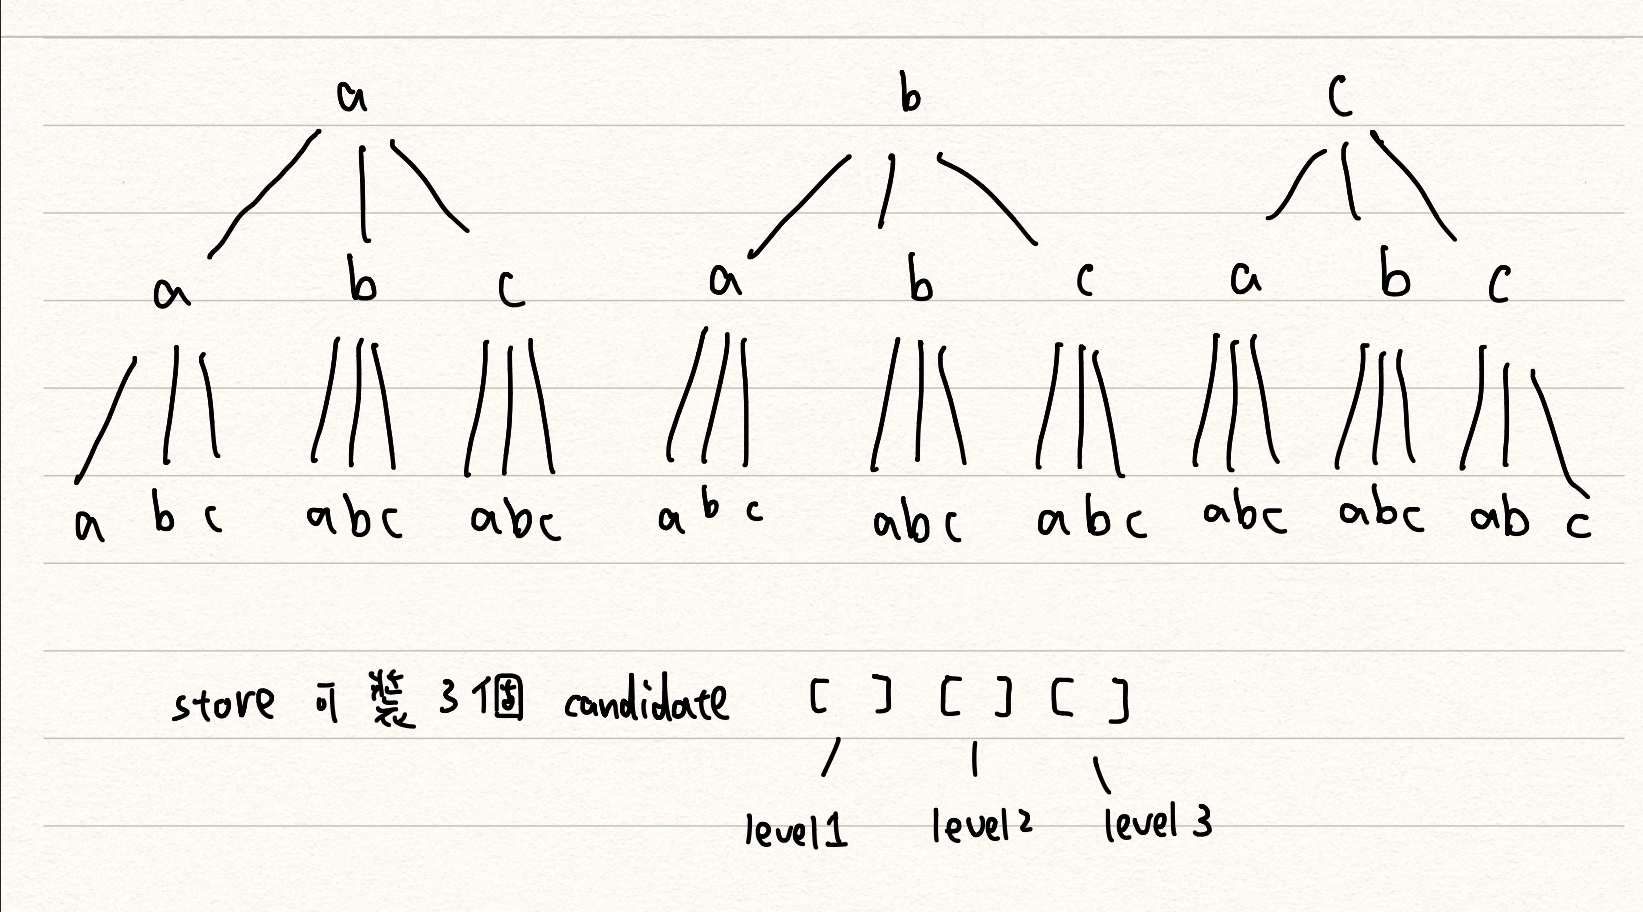 a b c
a b c a b c a b c
a b c abc abc a b c abc abc abc abc ab c
store 可裝3個 candidate [ ] [ ] [ ]
level1 level2 level3